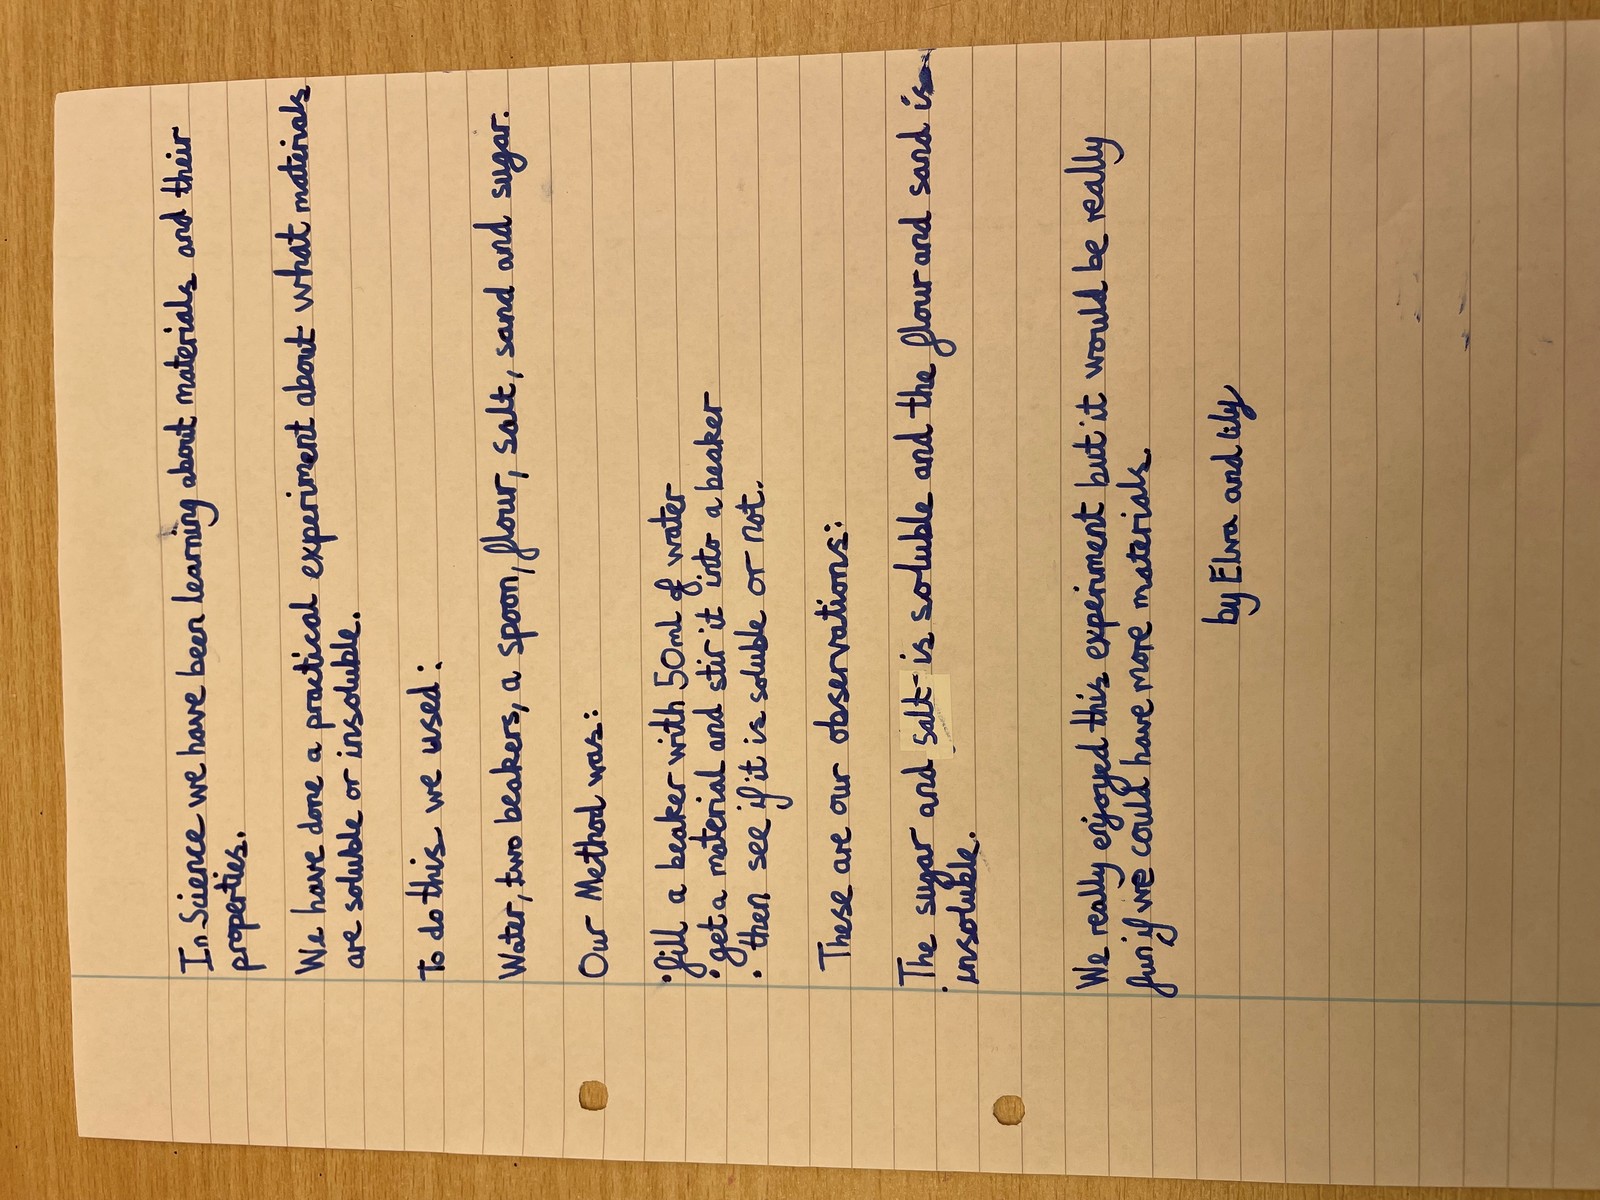 In Science we have been learning about materials and their
properties.
We have done a practical experiment about what materials
are soluble or insoluble.
To do this we used:
Water, two beakers, a spoon, flour, salt, sand and sugar.
Our Method was:
• fill a beaker with 50ml of water
• get a material and stir it into a beaker
• then see if it is soluble or not.
These are our observations:
The sugar and salt is soluble and the flour and sand is
• insoluble.
We really enjoyed this experiment but it would be really
fun if we could have more materials.
by Elva and lily